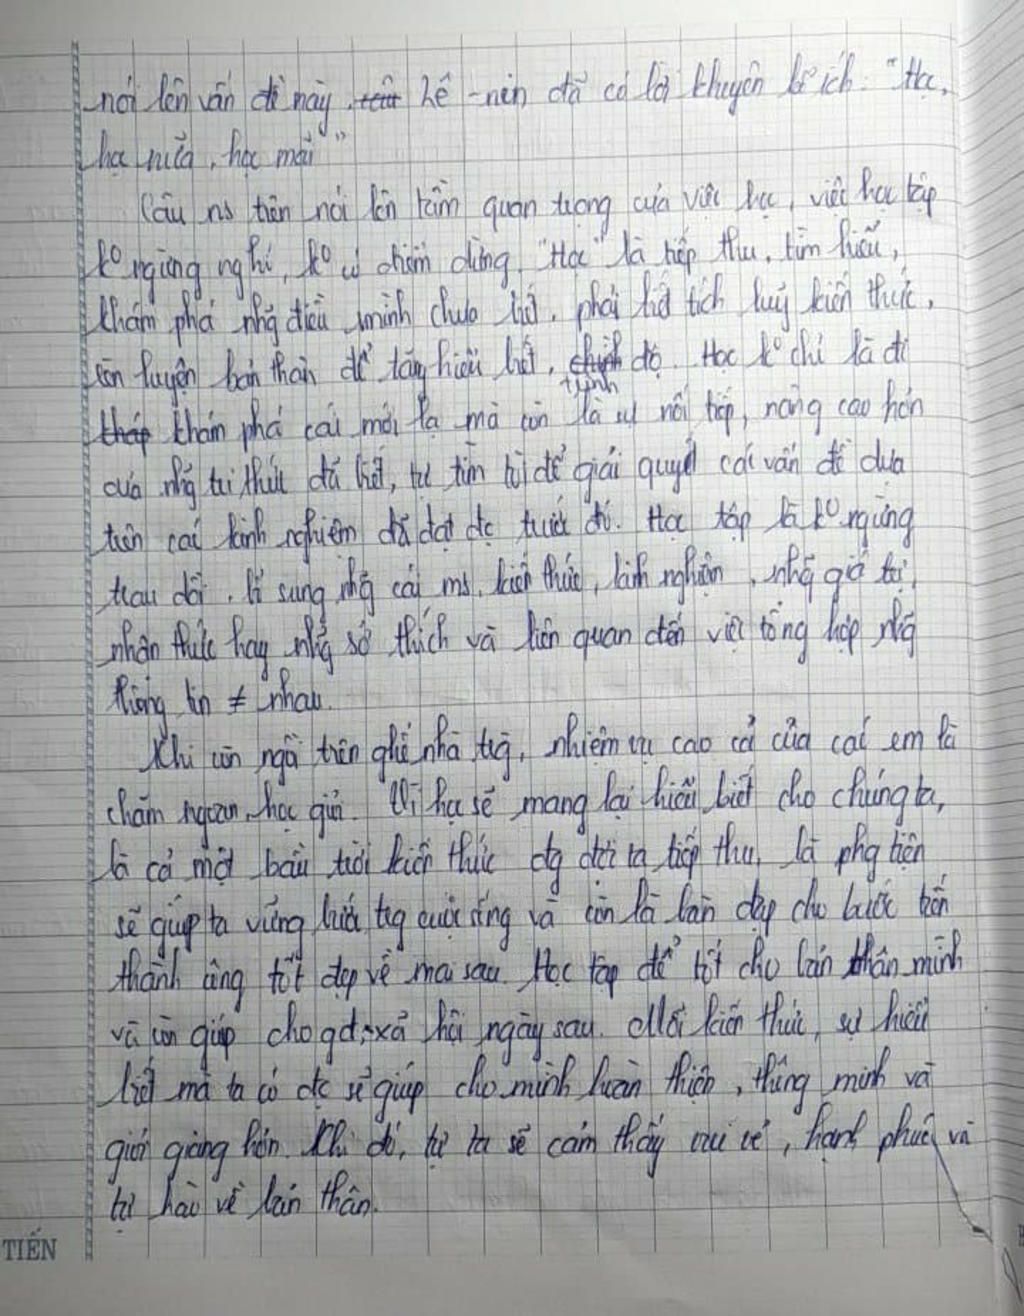 nói lên vấn đề này, Lê-nin đã có lời khuyên bổ ích: "Học,
học nữa, học mãi"
Câu ns trên nói lên tầm quan trọng của việc học, việc học tập
k° ngừng nghỉ, k° có điểm dừng. "Học" là tiếp thu, tìm hiểu,
khám phá nhg điều mình chưa biết, phải biết tích luỹ kiến thức,
rèn luyện bản thân để tăng hiểu biết, trình độ. Học k° chỉ là đi
khám phá cái mới lạ mà còn là sự nối tiếp, nâng cao hơn
của nhg tri thức đã biết, tự tìm tòi để giải quyết các vấn đề dựa
trên các kinh nghiệm đã đạt đc trước đó. Học tập là k° ngừng
trau dồi, bổ sung nhg cái ms, kiến thức, kinh nghiệm, nhg giá trị,
nhận thức hay nhg sở thích và liên quan đến việc tổng hợp nhg
thông tin ≠ nhau.
Khi còn ngồi trên ghế nhà trg, nhiệm vụ cao cả của các em là
chăm ngoan, học giỏi. Vì học sẽ mang lại hiểu biết cho chúng ta,
là cả một bầu trời kiến thức đg đợi ta tiếp thu, là phg tiện
sẽ giúp ta vững bước trg cuộc sống và còn là bàn đạp cho bước tiến
thành công tốt đẹp về mai sau. Học tập để tốt cho bản thân mình
và còn giúp cho gđ, xã hội ngày sau. Mỗi kiến thức, sự hiểu
biết mà ta có đc sẽ giúp cho mình hoàn thiện, thông minh và
giỏi giang hơn. Khi đó, tự ta sẽ cảm thấy vui vẻ, hạnh phúc và
tự hào về bản thân.
TIẾN